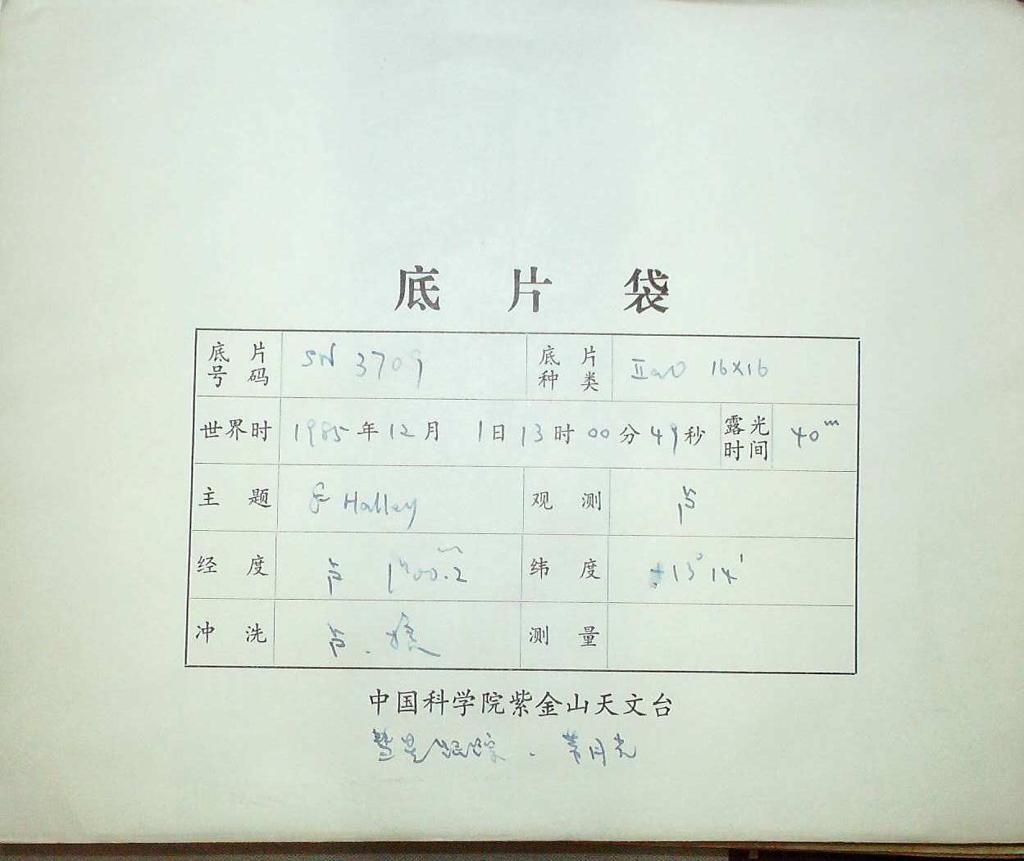 底片袋
底片号码 SN 3709 底片种类 IIaO 16×16
世界时 1985年12月1日13时00分49秒 露光时间 40ᵐ
主题 Halley 观测 芦
经度 芦 1ʰ00.ᵐ2 纬度 +13°14′
冲洗 芦. 测量
中国科学院紫金山天文台
彗星跟踪. 月光